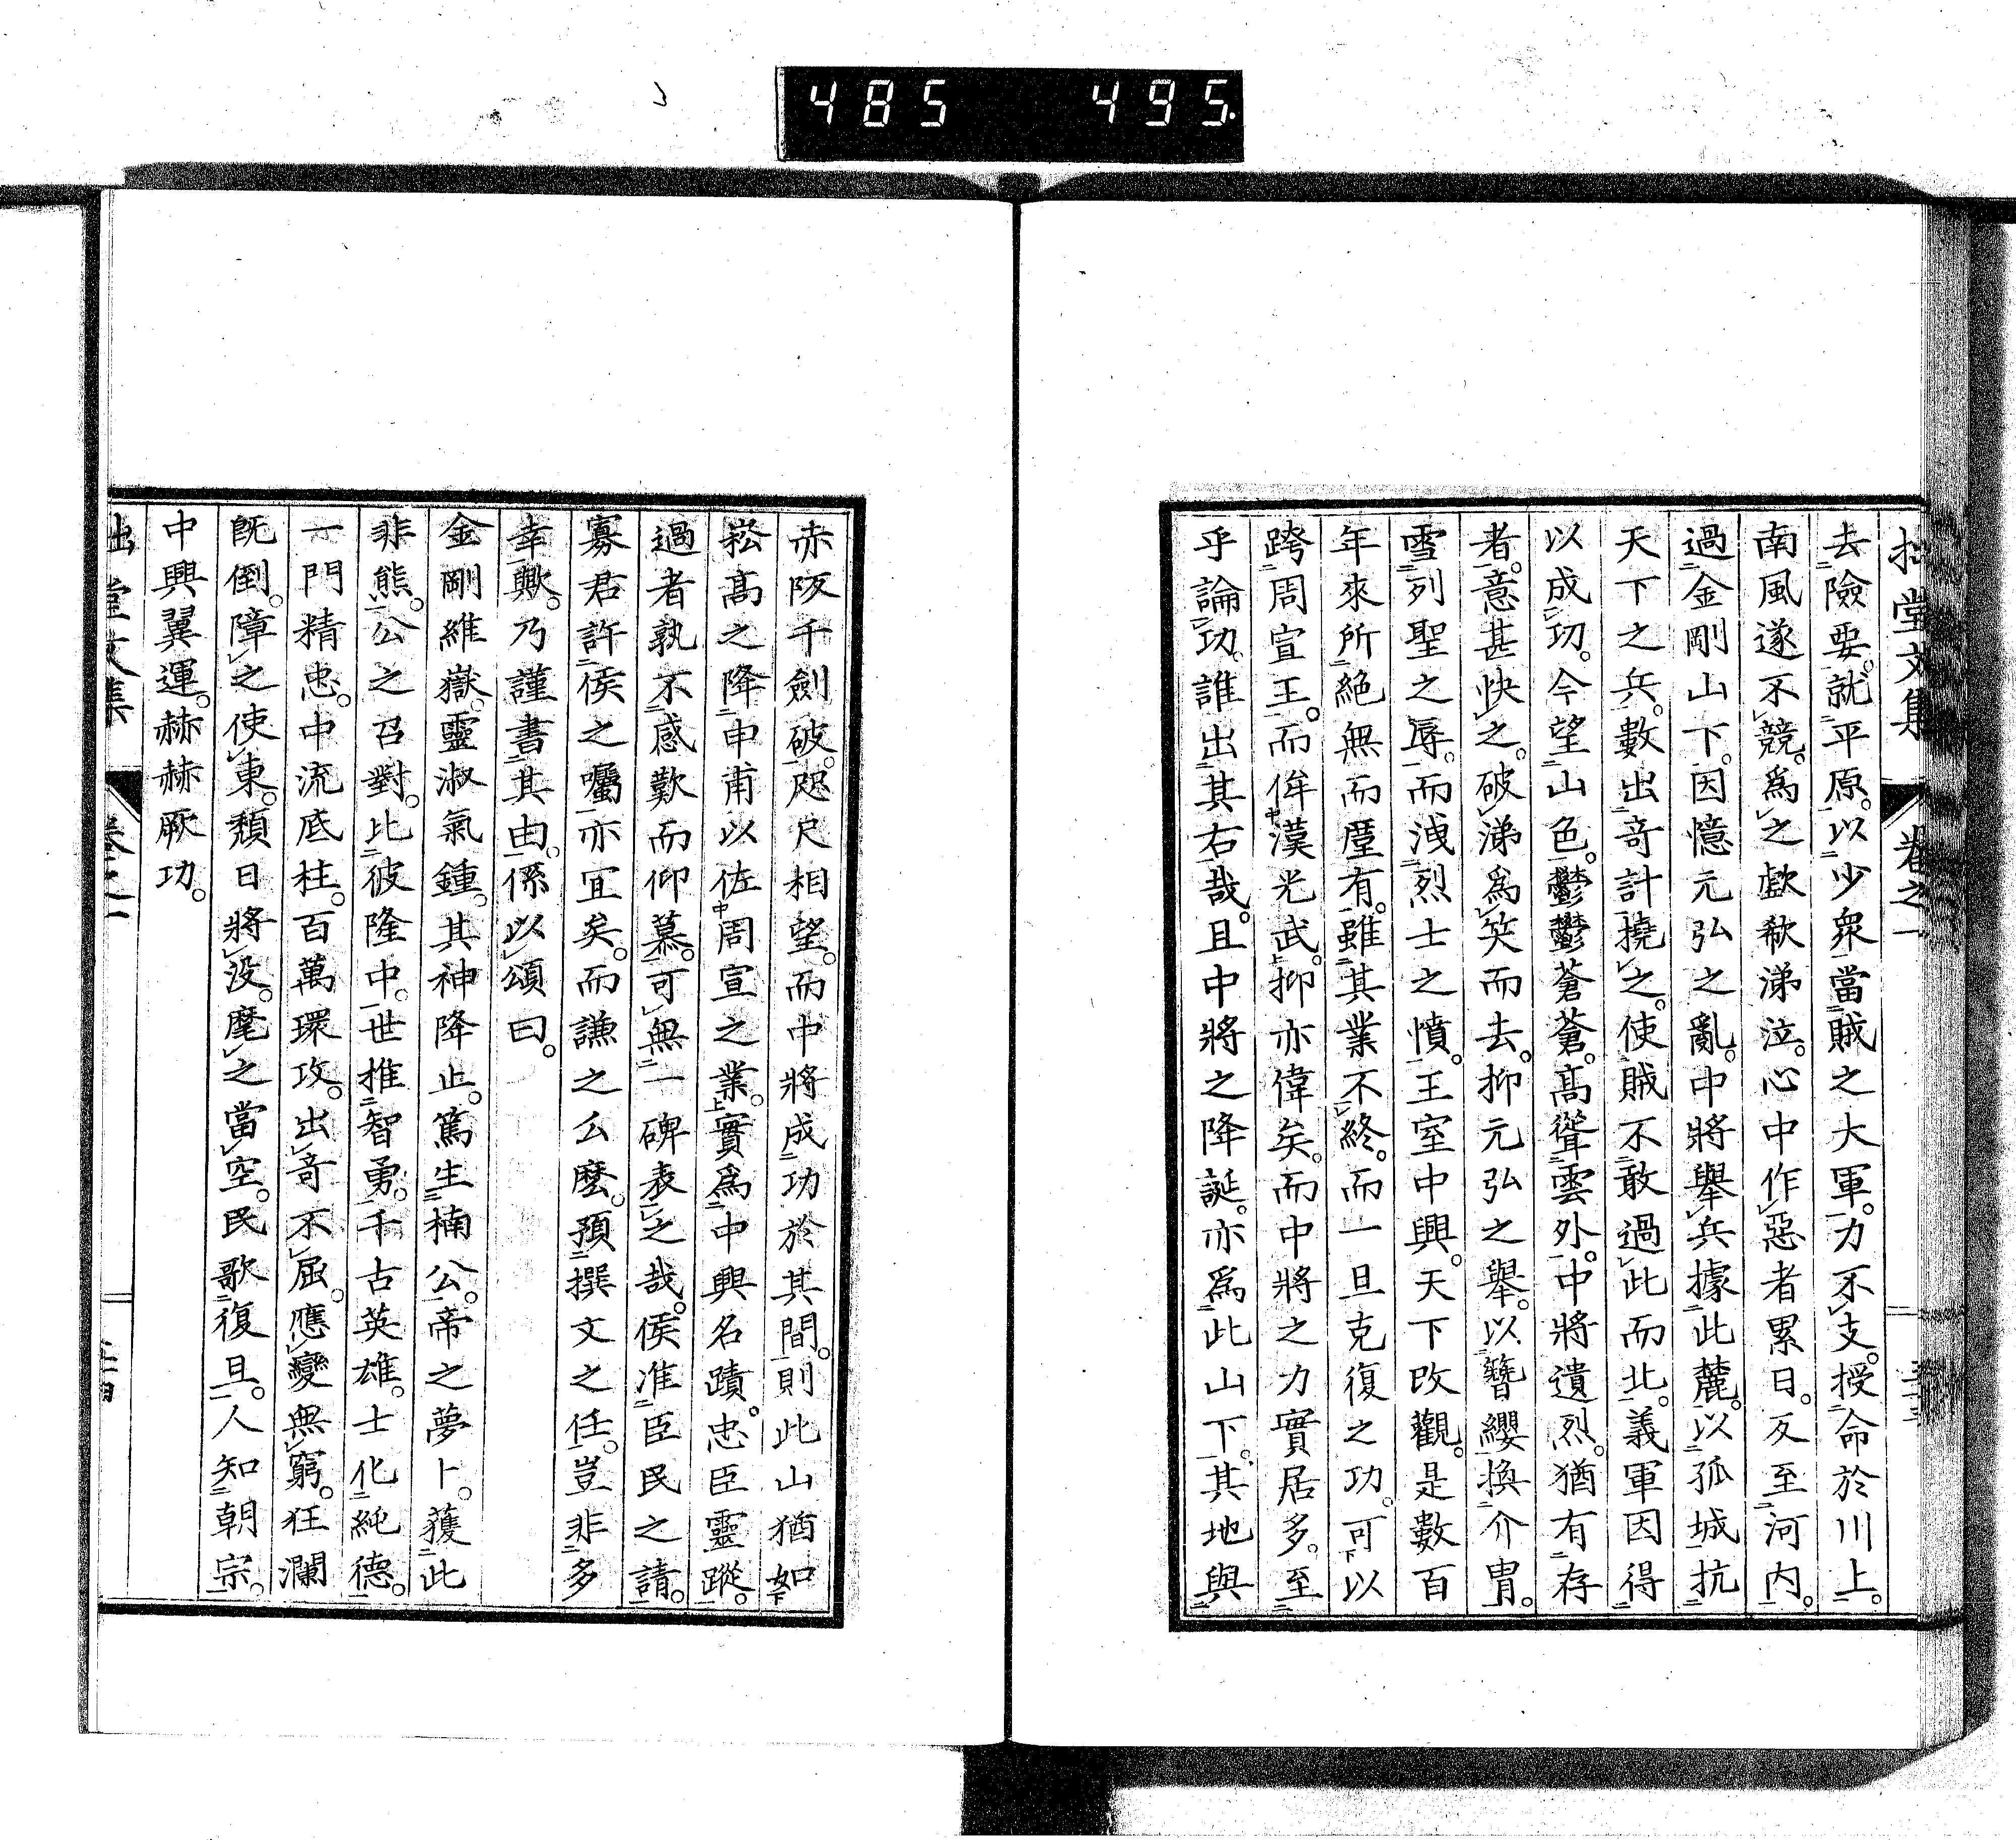 485 495.
拙堂文集 卷之一
去險要。就平原。以少衆當賊之大軍。力不支。授命於川上。
南風遂不競。爲之歔欷涕泣。心中作惡者累日。及至河内。
過金剛山下。因憶元弘之亂。中將舉兵據此麓。以孤城抗
天下之兵。數出奇計撓之。使賊不敢過此而北。義軍因得
以成功。今望山色。鬱鬱蒼蒼。高聳雲外。中將遺烈。猶有存
者。意甚快之。破涕爲笑而去。抑元弘之舉。以簪纓換介胄。
雪列聖之辱。而洩烈士之憤。王室中興。天下改觀。是數百
年來所絶無而廑有。雖其業不終。而一旦克復之功。可以
跨周宣王。而侔漢光武。抑亦偉矣。而中將之力實居多。至
乎論功。誰出其右哉。且中將之降誕。亦爲此山下。其地與
赤阪千劍破。咫尺相望。而中將成功於其間。則此山猶如
崧高之降申甫以佐周宣之業。實爲中興名蹟。忠臣靈蹤。
過者孰不感歎而仰慕。可無一碑表之哉。侯准臣民之請。
寡君許侯之囑。亦宜矣。而謙之么麼。預撰文之任。豈非多
幸歟。乃謹書其由。係以頌曰。
金剛維嶽。靈淑氣鍾。其神降止。篤生楠公。帝之夢卜。獲此
非熊。公之召對。比彼隆中。世推智勇。千古英雄。士化純德。
一門精忠。中流底柱。百萬環攻。出奇不屈。應變無窮。狂瀾
既倒。障之使東。頹日將沒。麾之當空。民歌復旦。人知朝宗。
中興翼運。赫赫厥功。
拙堂文集 卷之一